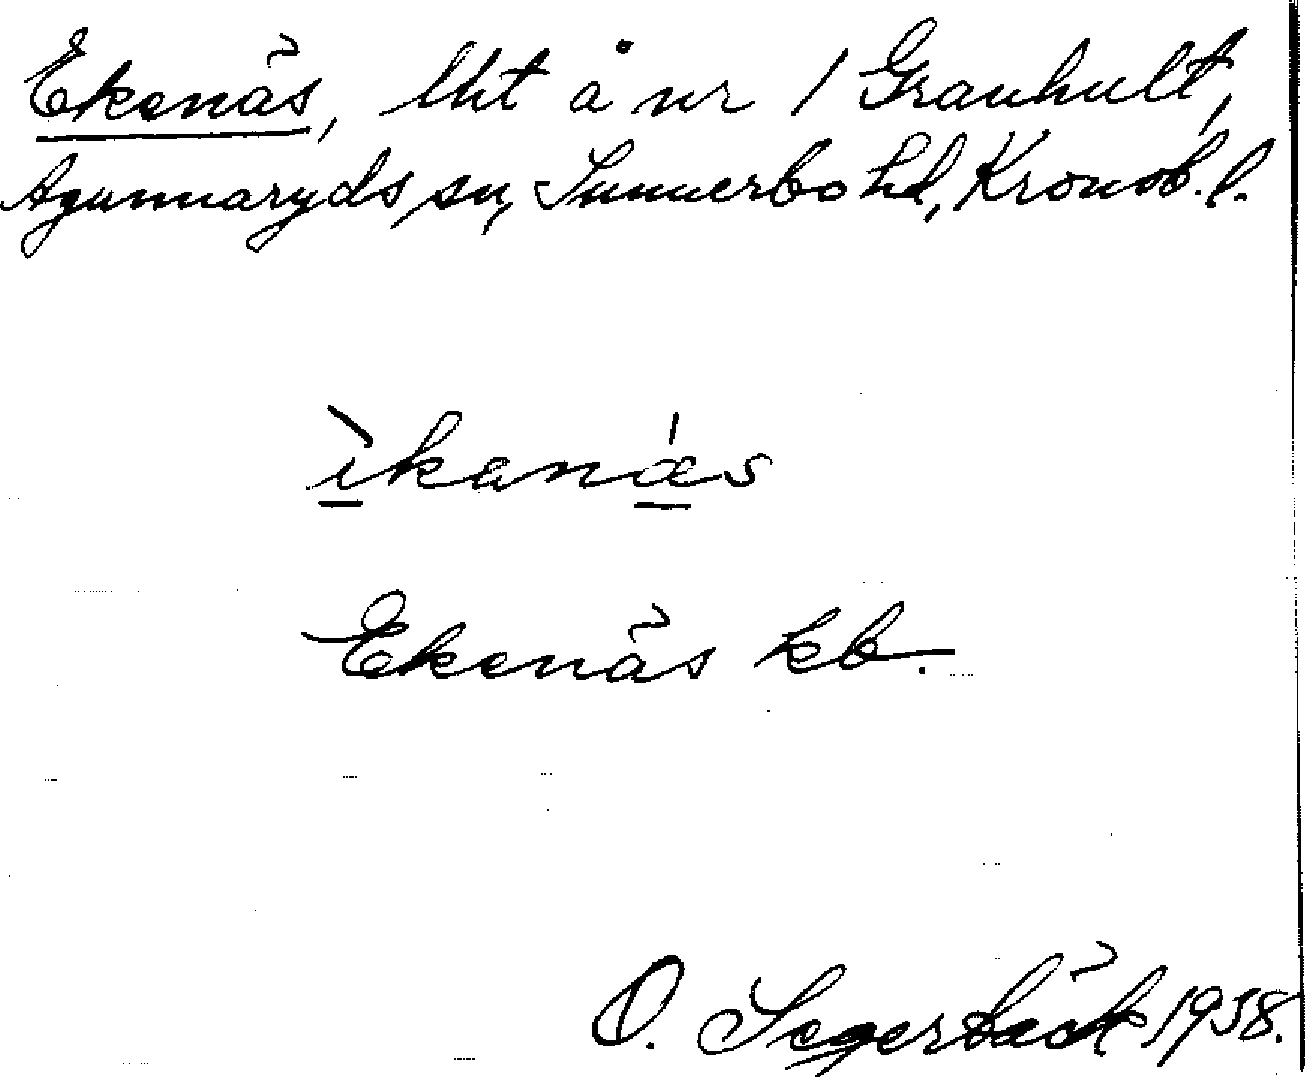 Ekenäs, lht å nr 1 Granhult,
Agunnaryds sn, Sunnerbo hd, Kronob. l.
ìkanǽs
Ekenäs kb.
O. Segerbäck 1938.